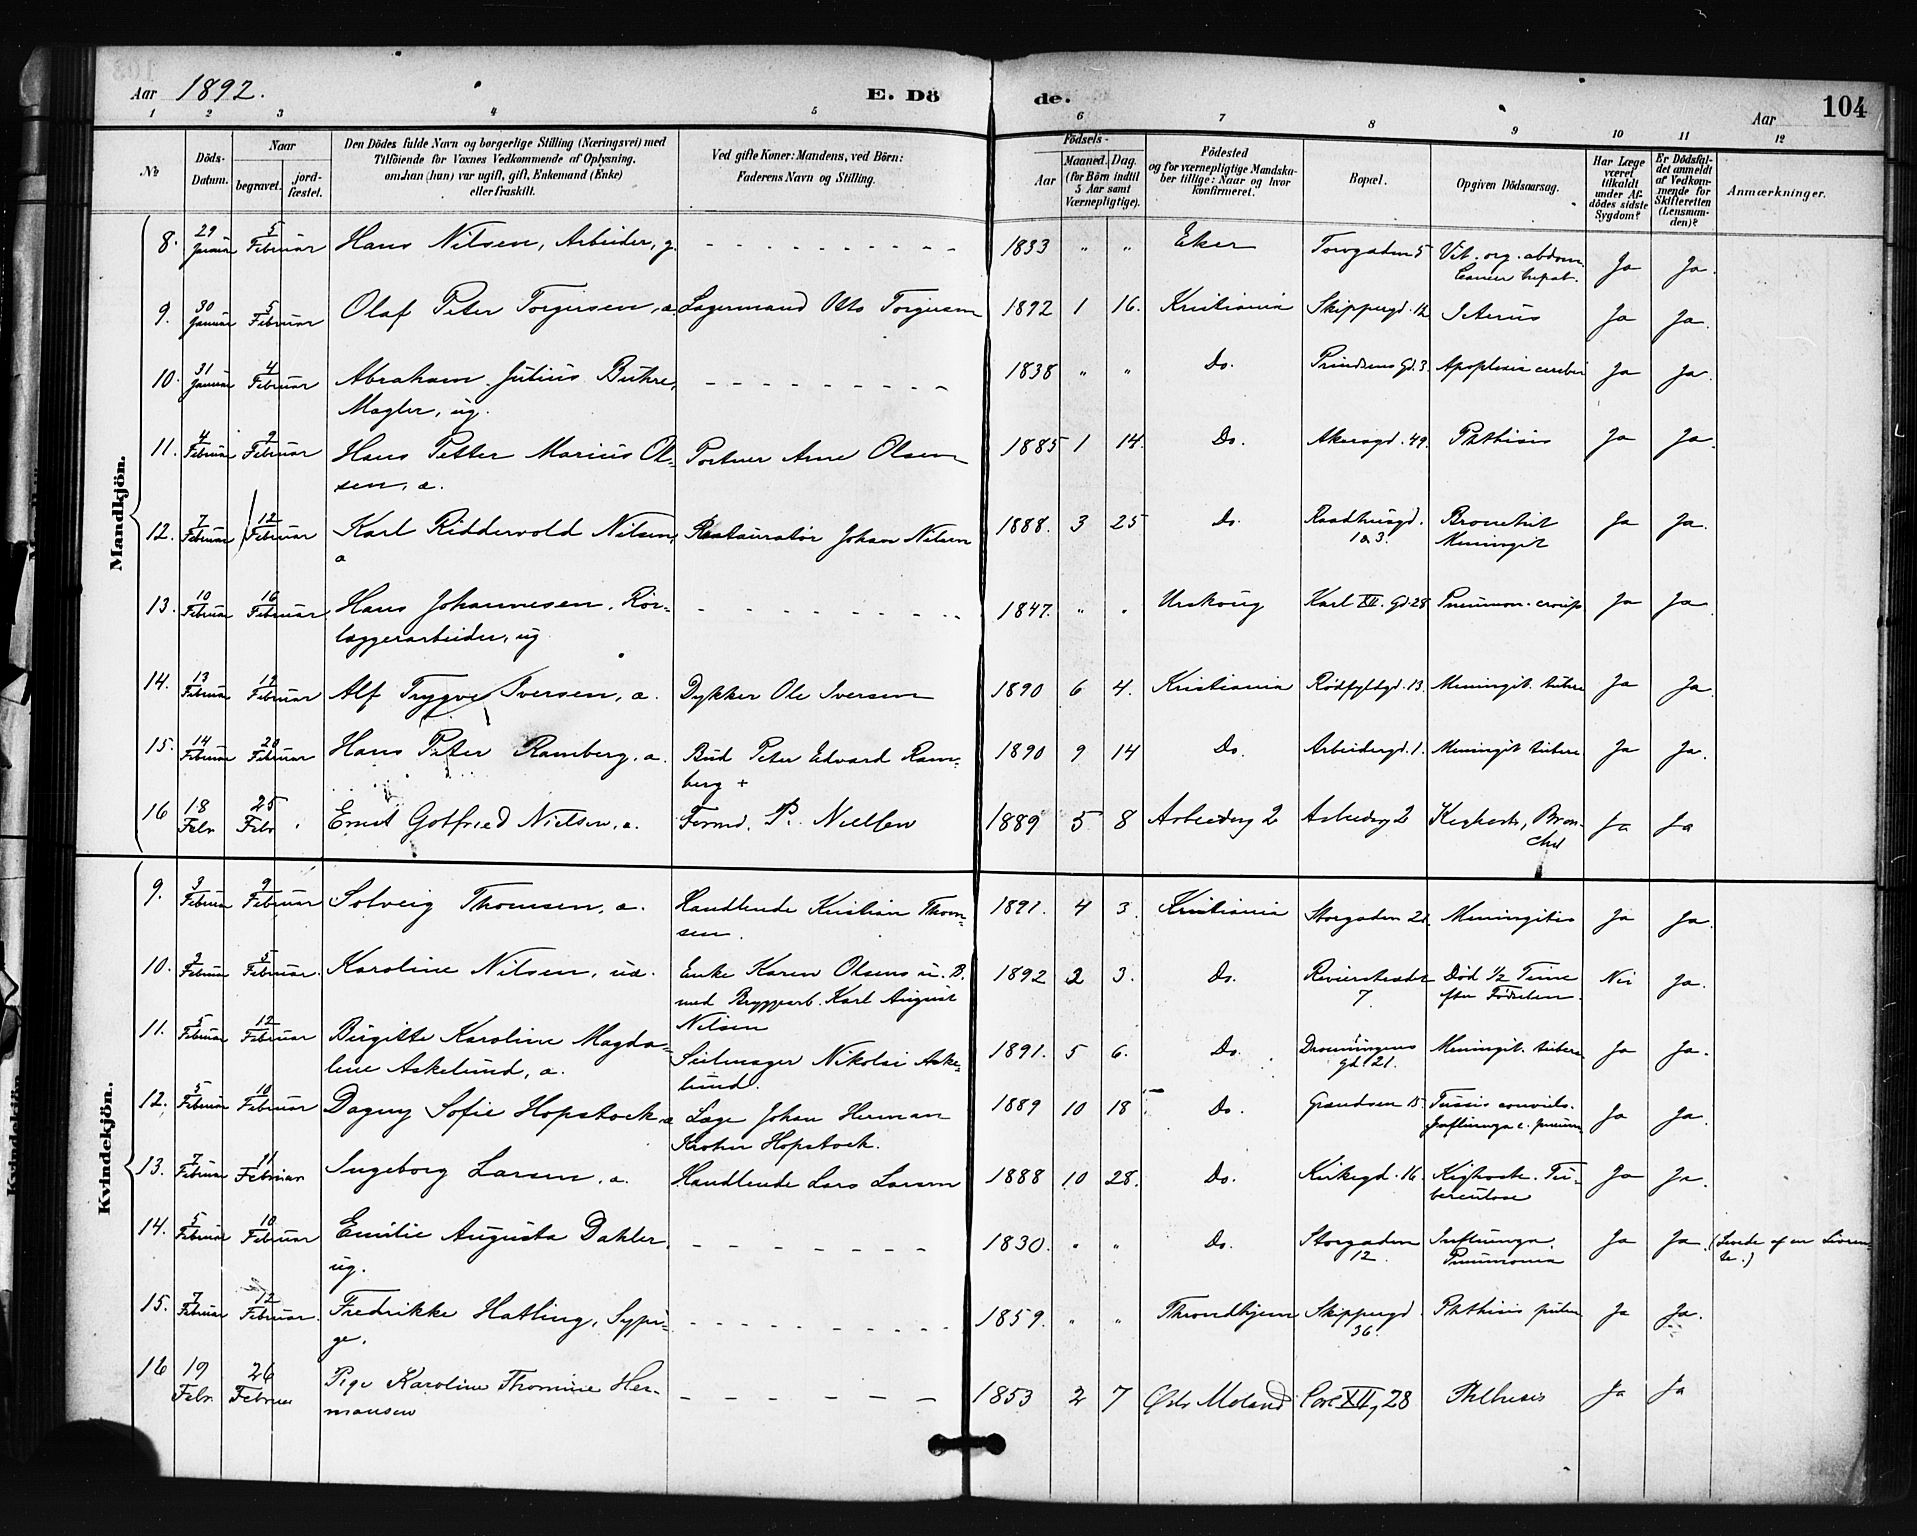 Aar 1892.
E. Dö de.
Aar
104
1 2 3 4 5 6 7 8 9 10 11 12
No
Döds-
Datum.
Naar
begravet.
jord-
fæstet.
Den Dödes fulde Navn og borgerlige Stilling (Næringsvei) med
Tilföiende for Voxnes Vedkommende af Oplysning,
om han (hun) var ugift, gift, Enkemand (Enke)
eller fraskilt.
Ved gifte Koner: Mandens, ved Börn:
Faderens Navn og Stilling.
Födsels-
Aar
Maaned. Dag.
(for Börn indtil
5 Aar samt
Værnepligtige).
Födested
og for værnepligtige Mandska-
ber tillige: Naar og hvor
konfirmeret.
Bopæl.
Opgiven Dödsaarsag.
Har Læge
været
tilkaldt
under Af-
dödes sidste
Sygdom?
Er Dödsfal-
det anmeldt
af Vedkom-
mende for
Skifteretten
(Lensman-
den)?
Anmærkninger.
Mandkjön.
8. 29 Januar 5 Februar Hans Nilsen, Arbeider, g. 1833 " " Eker Torvgaden 5 Vit. org. abdom. Cancer hepat. Ja Ja.
9. 30 Januar 5 Februar Olaf Peter Torgersen, a. Lagermand Otto Torgersen 1892 1 16. Kristiania Skippergd. 12 Icterus Ja Ja.
10. 31 Januar 4 Februar Abraham Julius Buhre, 1838 " " Do. Prindsens Gd. 3. Apoplexia cerebri Ja Ja.
Mægler, ug.
11. 4 Februar 9 Februar Hans Petter Marius Ol- Portner Arne Olsen 1885 1 14. Do. Akersgd. 49. Phthisis Ja Ja.
sen, a.
12. 7 Februar 12 Februar Karl Riddervold Nilsen, Restauratør Johan Nilsen 1888. 3 25 Do. Raadhusgd. Bronchit Ja Ja.
a 1 & 3. Meningit
13. 10 Februar 16 Februar Hans Johannesen, Rør- 1847. " " Urskoug Karl XII. Gd. 28 Pneumon. croup. Ja Ja
læggerarbeider, ug.
14. 13 Februar 19 Februar Alf Trygve Iversen, a. Dykker Ole Iversen 1890 6 4. Kristiania Rødfyldgd. 13. Meningit. tuberc Ja Ja.
15. 14 Februar 20 Februar Hans Peter Ramberg, a. Bud Peter Edvard Ram- 1890 9 14 Do. Arbeidergd. 1. Meningit tuberc Ja Ja.
berg +
16 18 Febr 25 Febr Ernst Gotfried Nielsen, a. Formd. P. Nielsen 1889 5 8 Arbeiderg 2 Arbeiderg 2 Kighoste, Bron- Ja Ja
chit
Kvindekjön.
9. 3 Februar 9 Februar Solveig Thomsen, a. Handlende Kristian Thom- 1891. 4 3. Kristiania Storgaden 21. Meningitis Ja Ja.
sen.
10. 3 Februar 5 Februar. Karoline Nilsen, ua. Enke Karen Olsens u. B. 1892 2 3. Do. Revierstrædet Død 1/2 Time Nei Ja.
med Bryggearb. Karl August 7. efter Fødselen.
Nilsen
11. 5 Februar 12 Februar Birgitte Karoline Magda- Seilmager Nikolai Aske- 1891. 5 6. Do. Dronningens Meningit. tuberc Ja Ja.
lene Askelund, a. lund. gd. 21.
12. 5 Februar 10 Februar Dagny Sofie Hopstock a Læge Johan Herman 1889 10 18 Do. Grændsen 15. Tussis convuls. Ja Ja.
Hopstock. Influenza c. pneum
13. 7 Februar 11 Februar Ingeborg Larsen, a. Handlende Lars Larsen 1888 10 28. Do. Kirkegd. 16 Kighoste. Tu- Ja Ja.
berculose
14. 5 Februar 10 Februar Emilie Augusta Dahler, 1830. " " Do. Storgaden Influenza Ja Ja.
ug. 12. Pneumonia
15. 7 Februar 12 Februar. Fredrikke Hatling, Sypi- 1859. " " Throndhjem Skippergd. Phthisis pulm Ja Ja.
ge. 36.
16 19 Febr 26 Februar Pige Karoline Thomine Her- 1853 2 7 Østr Moland Carl XII g 28 Phthisis Ja Ja
mansen